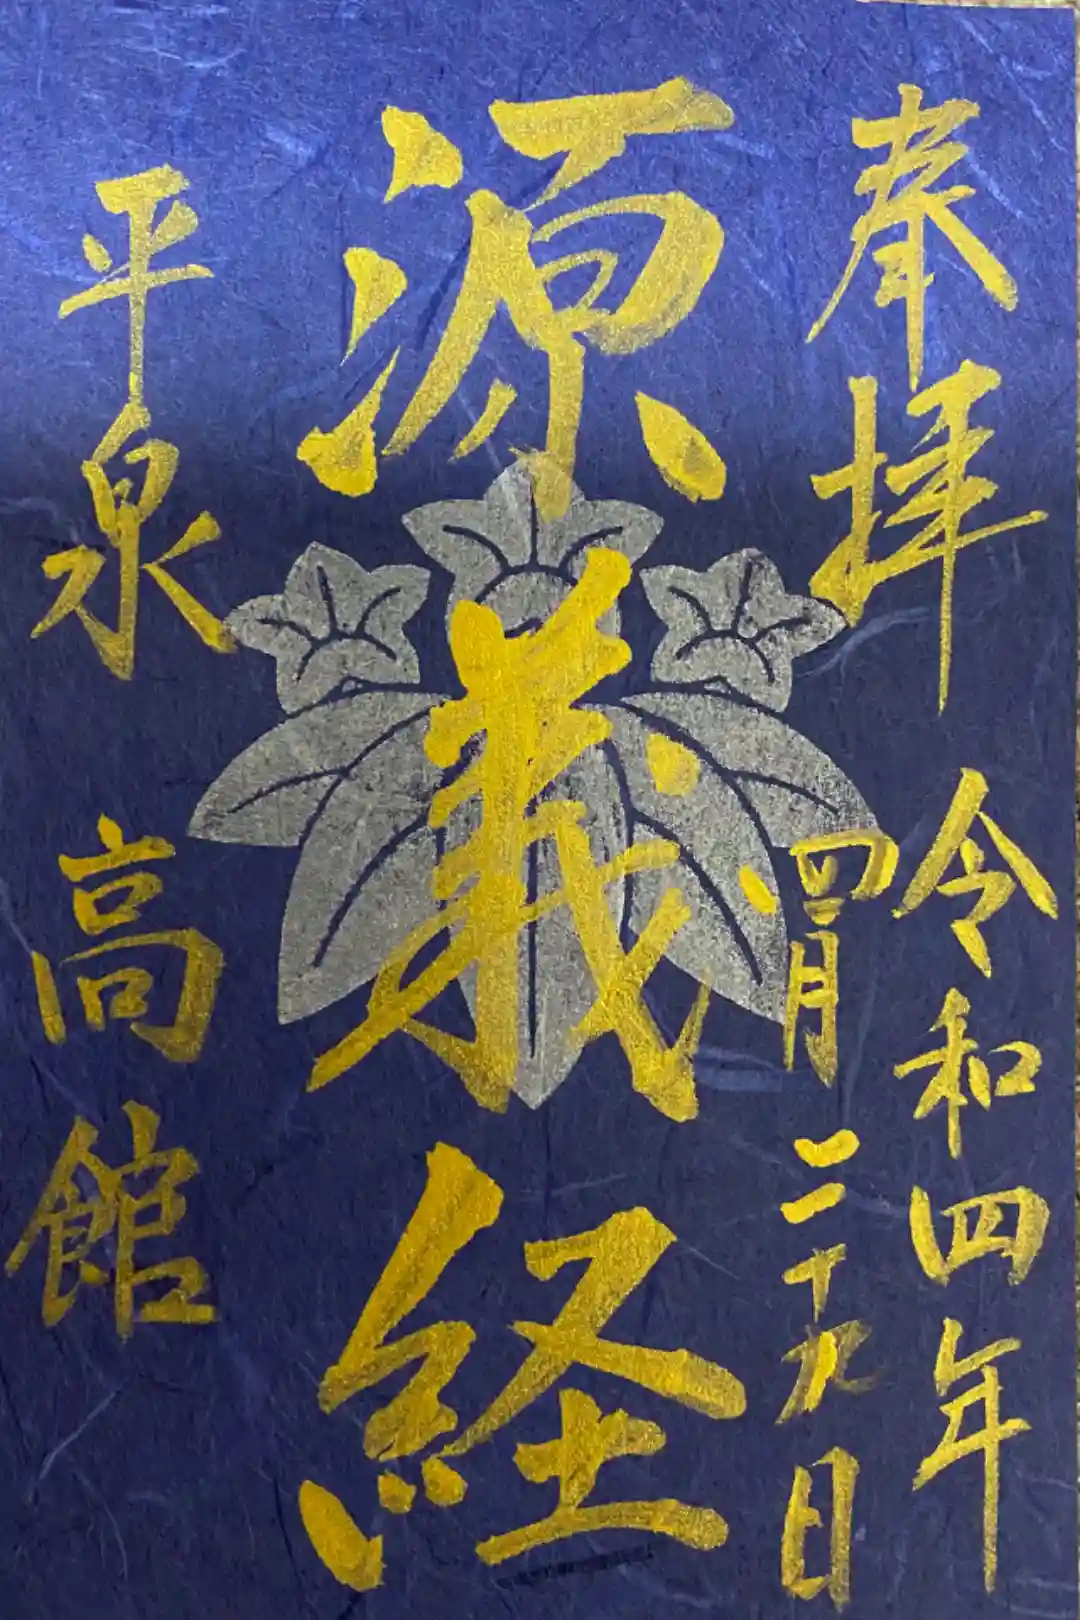 奉拝 令和四年
四月二十九日
源義経
平泉 高館